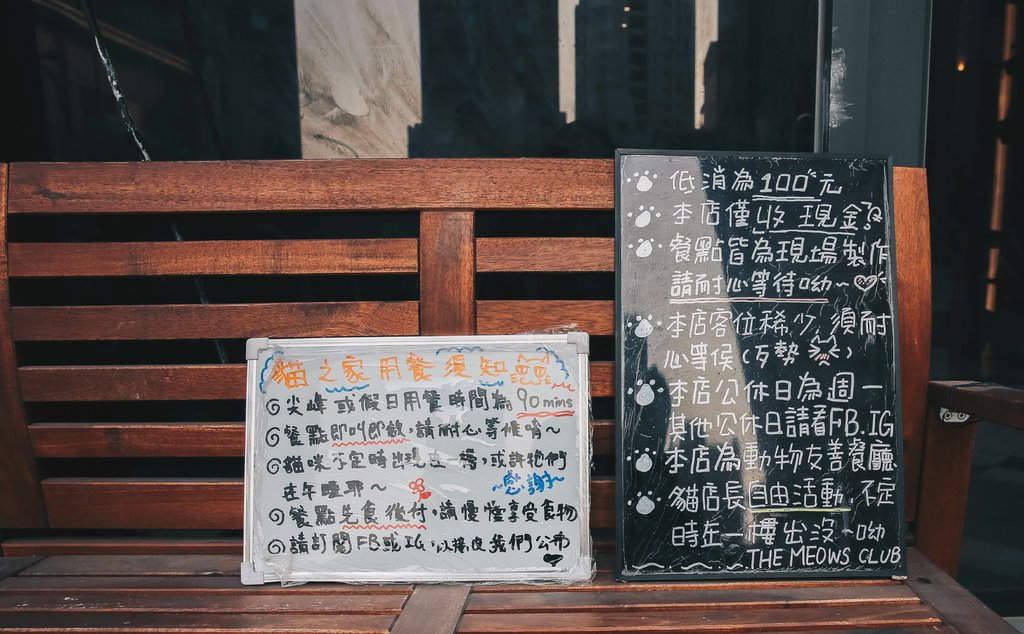 貓之家用餐須知
尖峰或假日用餐時間為90mins
餐點即叫即飲,請耐心等候唷~
貓咪不定時出現在 ,或許牠們
在午睡耶~
~感謝~
餐點先食後付,請慢慢享受食物
請訂閱FB或IG,以接收我們公布
低消為100元
本店僅收現金
餐點皆為現場製作
請耐心等待呦~
本店客位稀少,須耐
心等候(歹勢 )
本店公休日為週一
其他公休日請看FB.IG
本店為動物友善餐廳
貓店長自由活動,不定
時在一樓出沒~呦
THE MEOWS CLUB